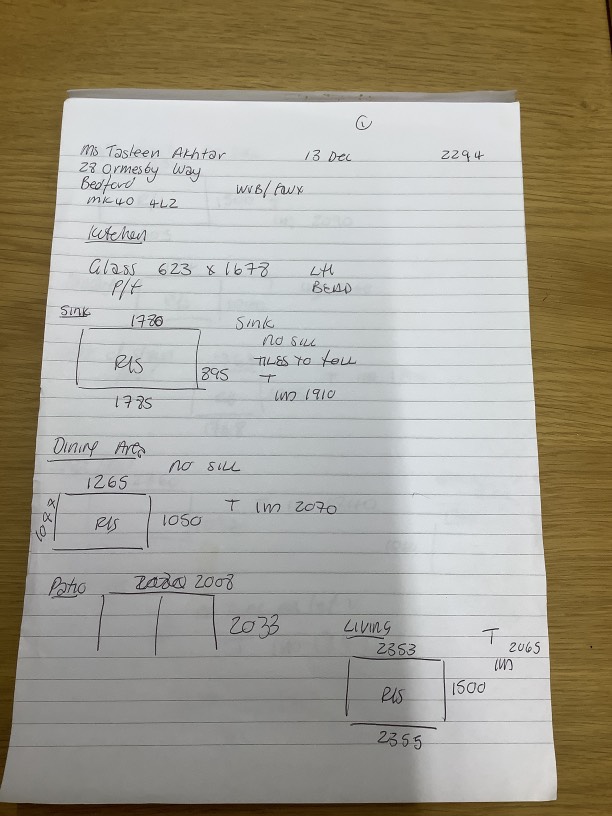 1
Ms Tasleen Akhtar 13 Dec 2294
28 Ormesby Way
Bedford WVB/
MK40 4LZ
Kitchen
Glass 623 x 1678 LH
P/f BEAD
Sink 1780 Sink
NO SILL
TILES TO
R/S 895 T
1785 IND 1910
Dining Area NO SILL
1265
1022 R/S 1050 T IND 2070
Patio 2008
2033
LIVING T
2353 2065
IND
R/S 1500
2355